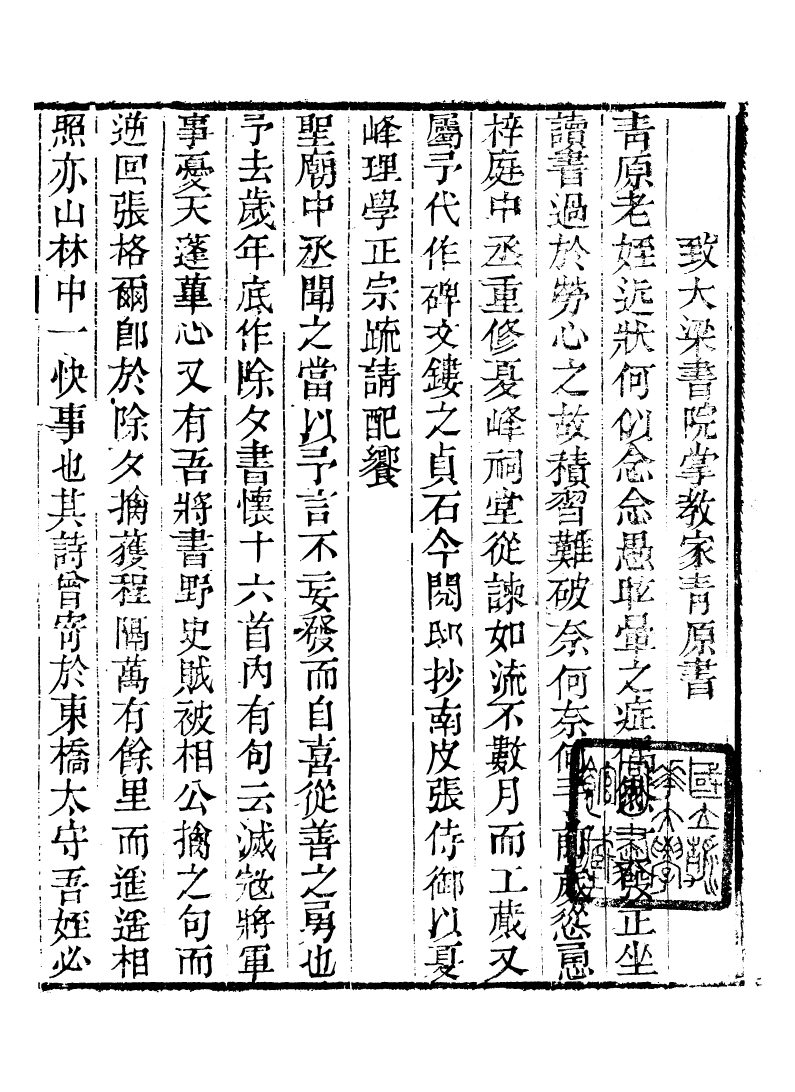 致大梁書院掌教家青原書
青原老姪近狀何似念念愚眩暈之症發正坐
讀書過於勞心之故積習難破奈何奈何予前歲慫恿
梓庭中丞重修夏峰祠堂從諫如流不數月而工蕆又
屬予代作碑文鏤之貞石今閱邸抄南皮張侍御以夏
峰理學正宗疏請配饗
聖廟中丞聞之當以予言不妄發而自喜從善之勇也
予去歲年底作除夕書懷十六首內有句云滅寇將軍
事憂天蓬蓽心又有吾將書野史賊被相公擒之句而
逆回張格爾卽於除夕擒獲程隔萬有餘里而遙遙相
照亦山林中一快事也其詩曾寄於東橋太守吾姪必
國立
大學